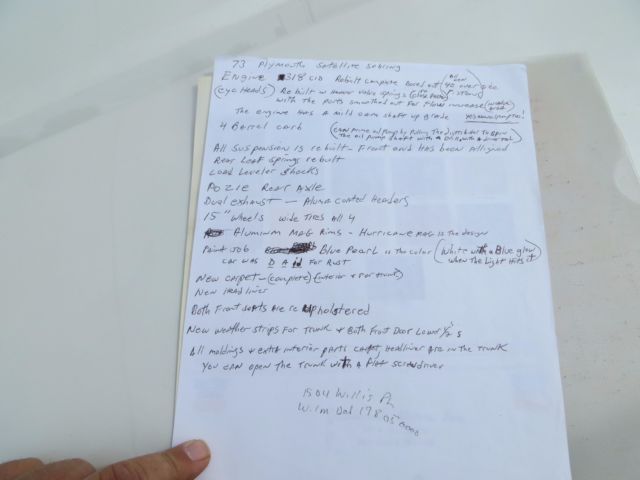 73 Plymouth Satellite Sebring
Engine 318 CID Rebuilt Complete Bored out 40 over
(cyc Heads) Rebuilt w Heavier valve springs
with the ports smoothed out For Flow increase
The engine Has A mild cam shaft up grade
4 Barrel carb (can prime oil pump by Pulling The distributor To spin
The oil pump shaft with a Drill with a
All Suspension is rebuilt - Front and Has been Alligned
Rear Leaf Springs rebuilt
Load Leveler shocks
Pozie Rear Axle
Dual exhaust - Alum coated Headers
15" wheels wide Tires All 4
Aluminum Mag Rims - Hurricane mag is the design
Paint Job Blue Pearl is the color (White with a Blue glow
when The Light Hits it)
car was DA'd For Rust
New carpet - (complete) (interior & For trunk)
New Headliner
Both Front seats Are re upholstered
New weather strips For Trunk & Both Front Door Lower 1/2's
All moldings & extra interior parts carpet, Headliner Are in the Trunk
You can open the trunk with A Flat screwdriver
1504 Willis Pl
Wilm Del 19805